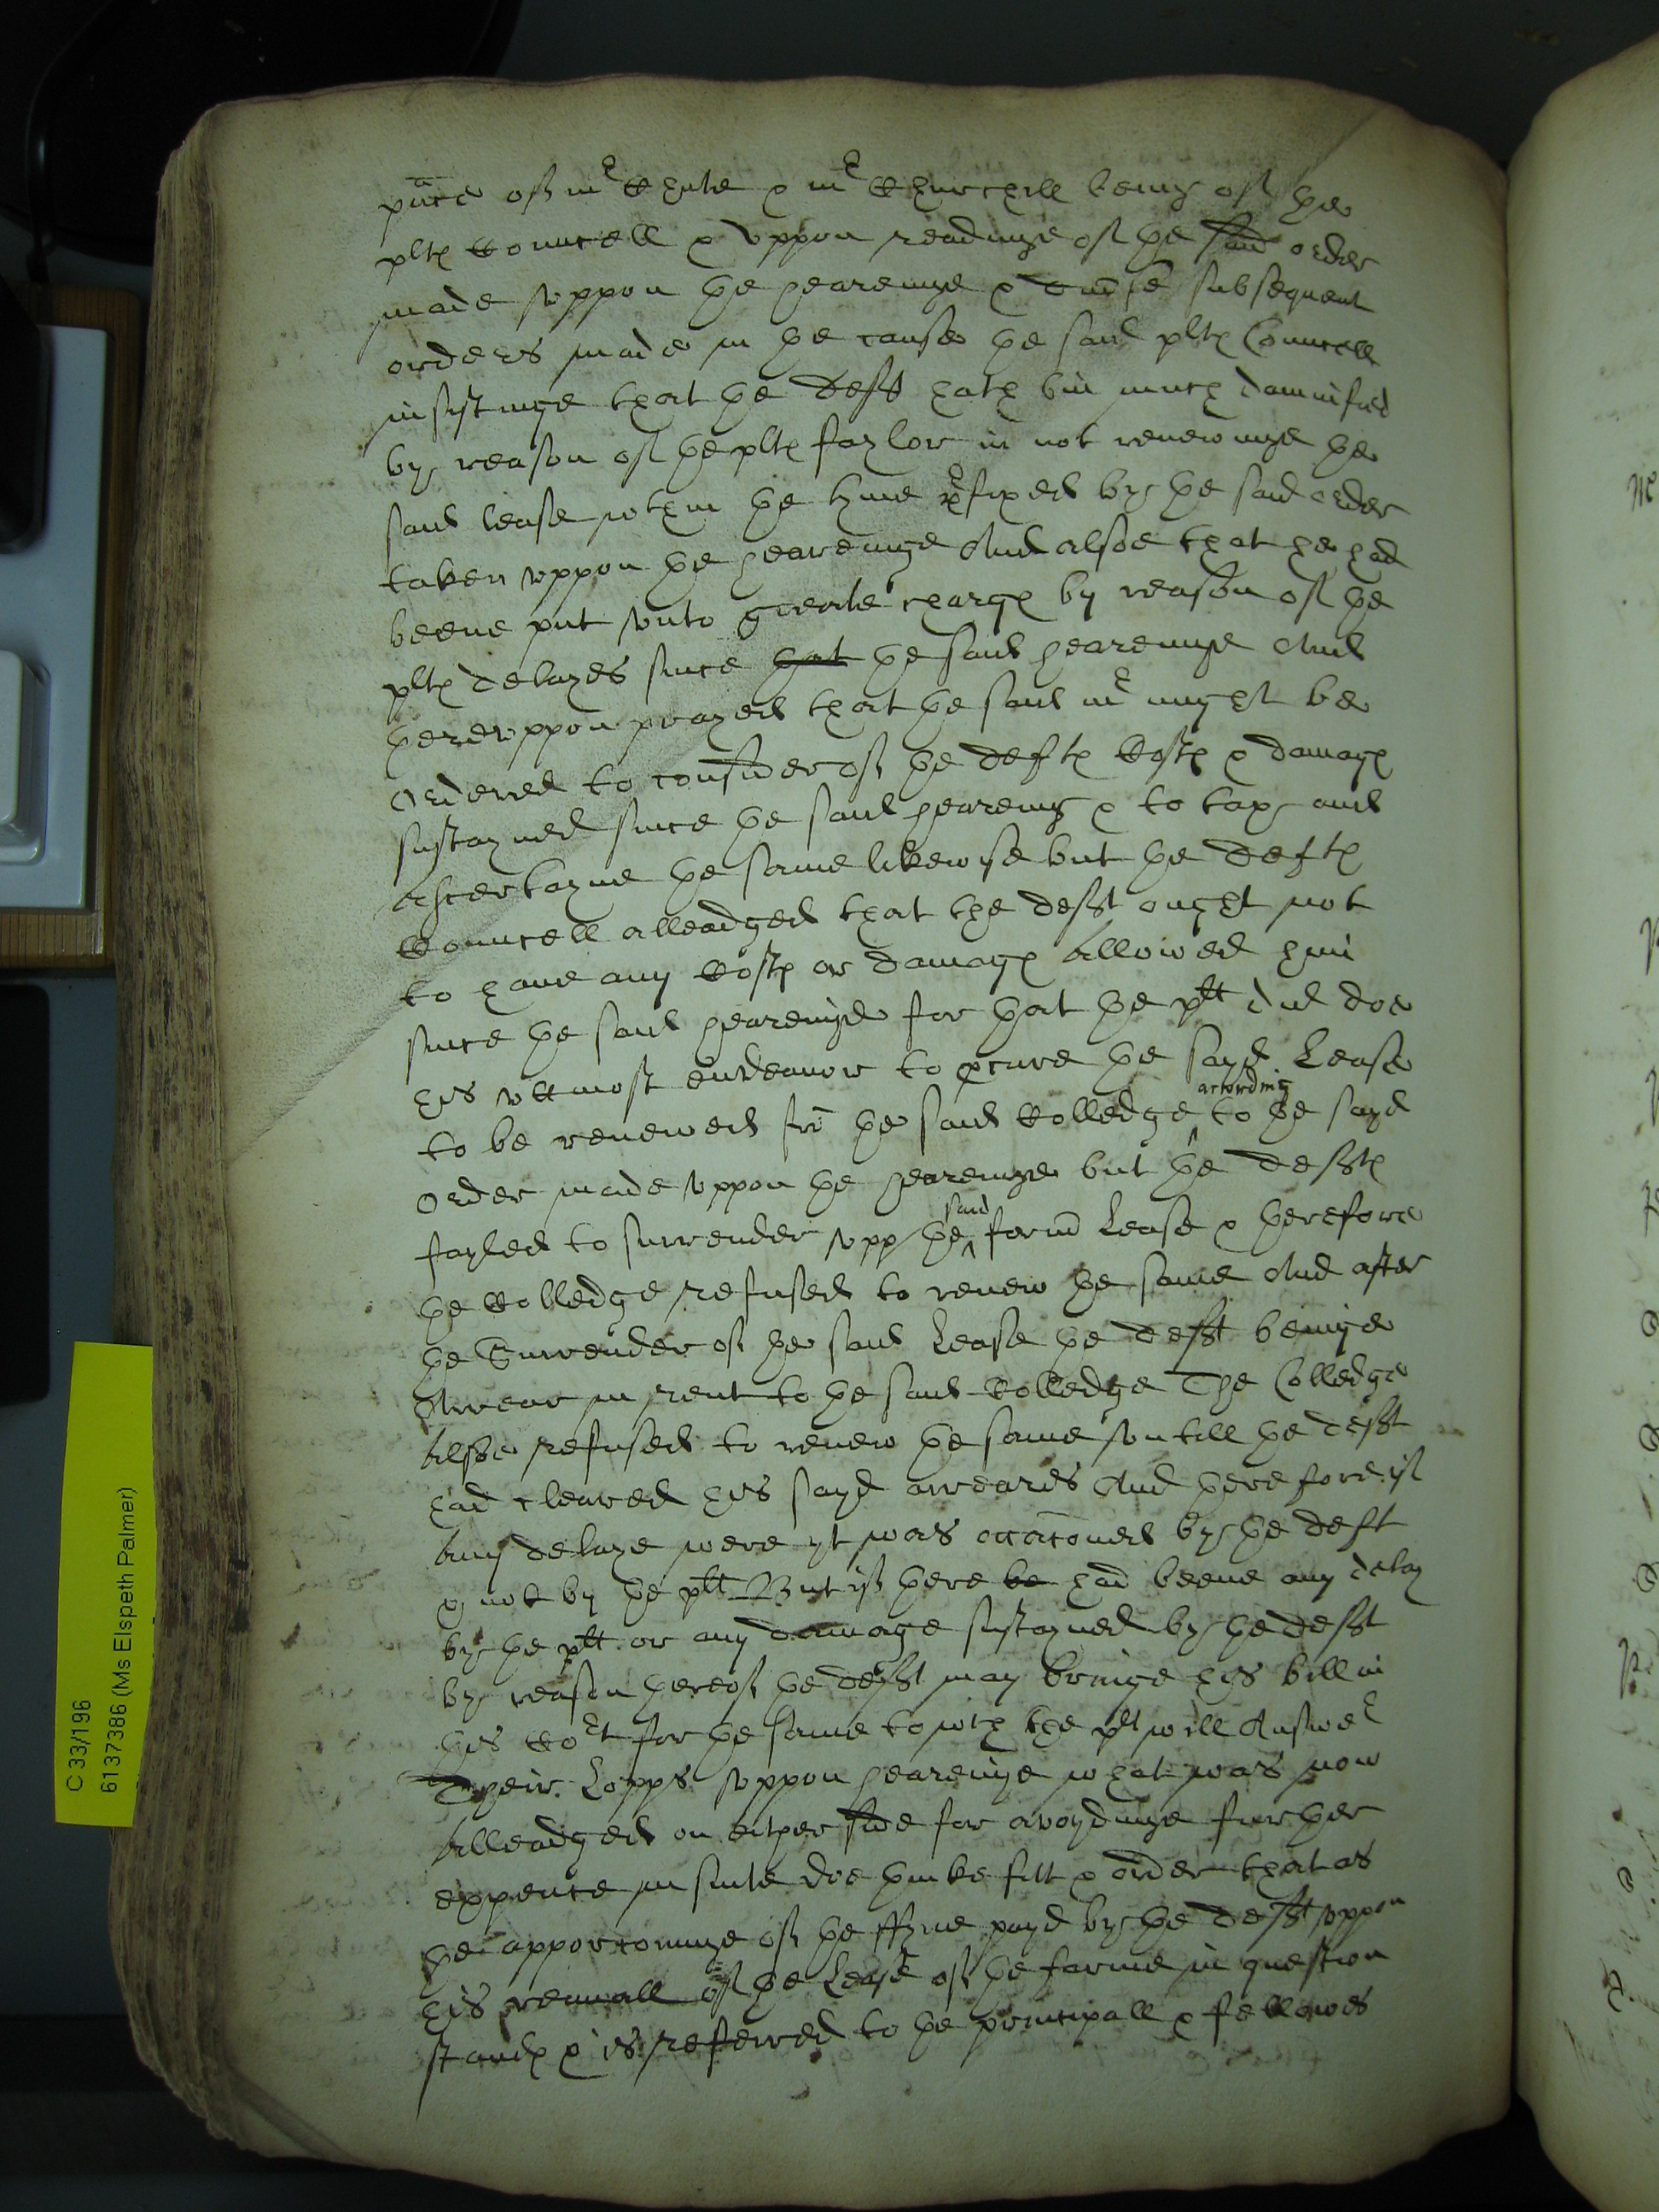 pñce of mr Chute & mr Churchill being of the
pltes Councell & uppon readinge of the said order
made uppon the heareinge & the subsequent
orders made in the cause the said pltes Councell
insistinge that the deft hath bin much damnified
by reason of the pltes faylor in not renewinge the
said lease within the tyme prfixed by the said order
taken uppon the heareinge And alsoe that he had
beene put unto greate charges by reason of the
pltes delayes since that the said heareinge And
thereuppon prayed that the said mr might be
ordered to consider of the deftes Costes & damages
sustayned since the said heareing & to tax and
ascertayne the same likewise but the deftes
Councell alleadged that the deft ought not
to have any Costes or damages allowed him
since the said heareinge for that the plt did doe
his uttmost endeavor to pcure the sayd Lease
to be renewed frõ the said Colledge according to the sayd
order made uppon the heareinge but the deftes
fayled to surrender upp the said formr Lease & therefore
the Colledge refused to renew the same And after
the Surrender of the said Lease the deft beinge
Arrear in rent to the said Colledge The Colledge
alsoe refused to renew the same untill the deft
had cleared his sayd arreares And therefore if
any delaye were yt was occacõned by the deft
& not by the plt But if there be had beene any delay
by the plt or any damage sustayned by the deft
by reason thereof the deft may bringe his bill in
this Cort for the same to wch the plt will Answer
Their Lopps uppon heareinge what was now
alleadged on either side for avoydinge further
expence in suite doe thinke fitt & order that as
the apporconinge of the ffyne payd by the deft uppon
his renuall of the Lease of the farme in question
standes & is referred to the principall & fellowes
C 33/196
6137386 (Ms Elspeth Palmer)